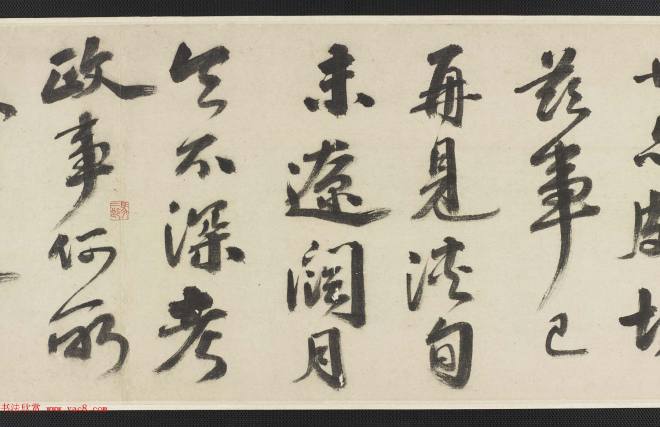 茲事已
再見浹旬
未遼闊月
不深考
政事何所
书法欣赏 www.yac8.com